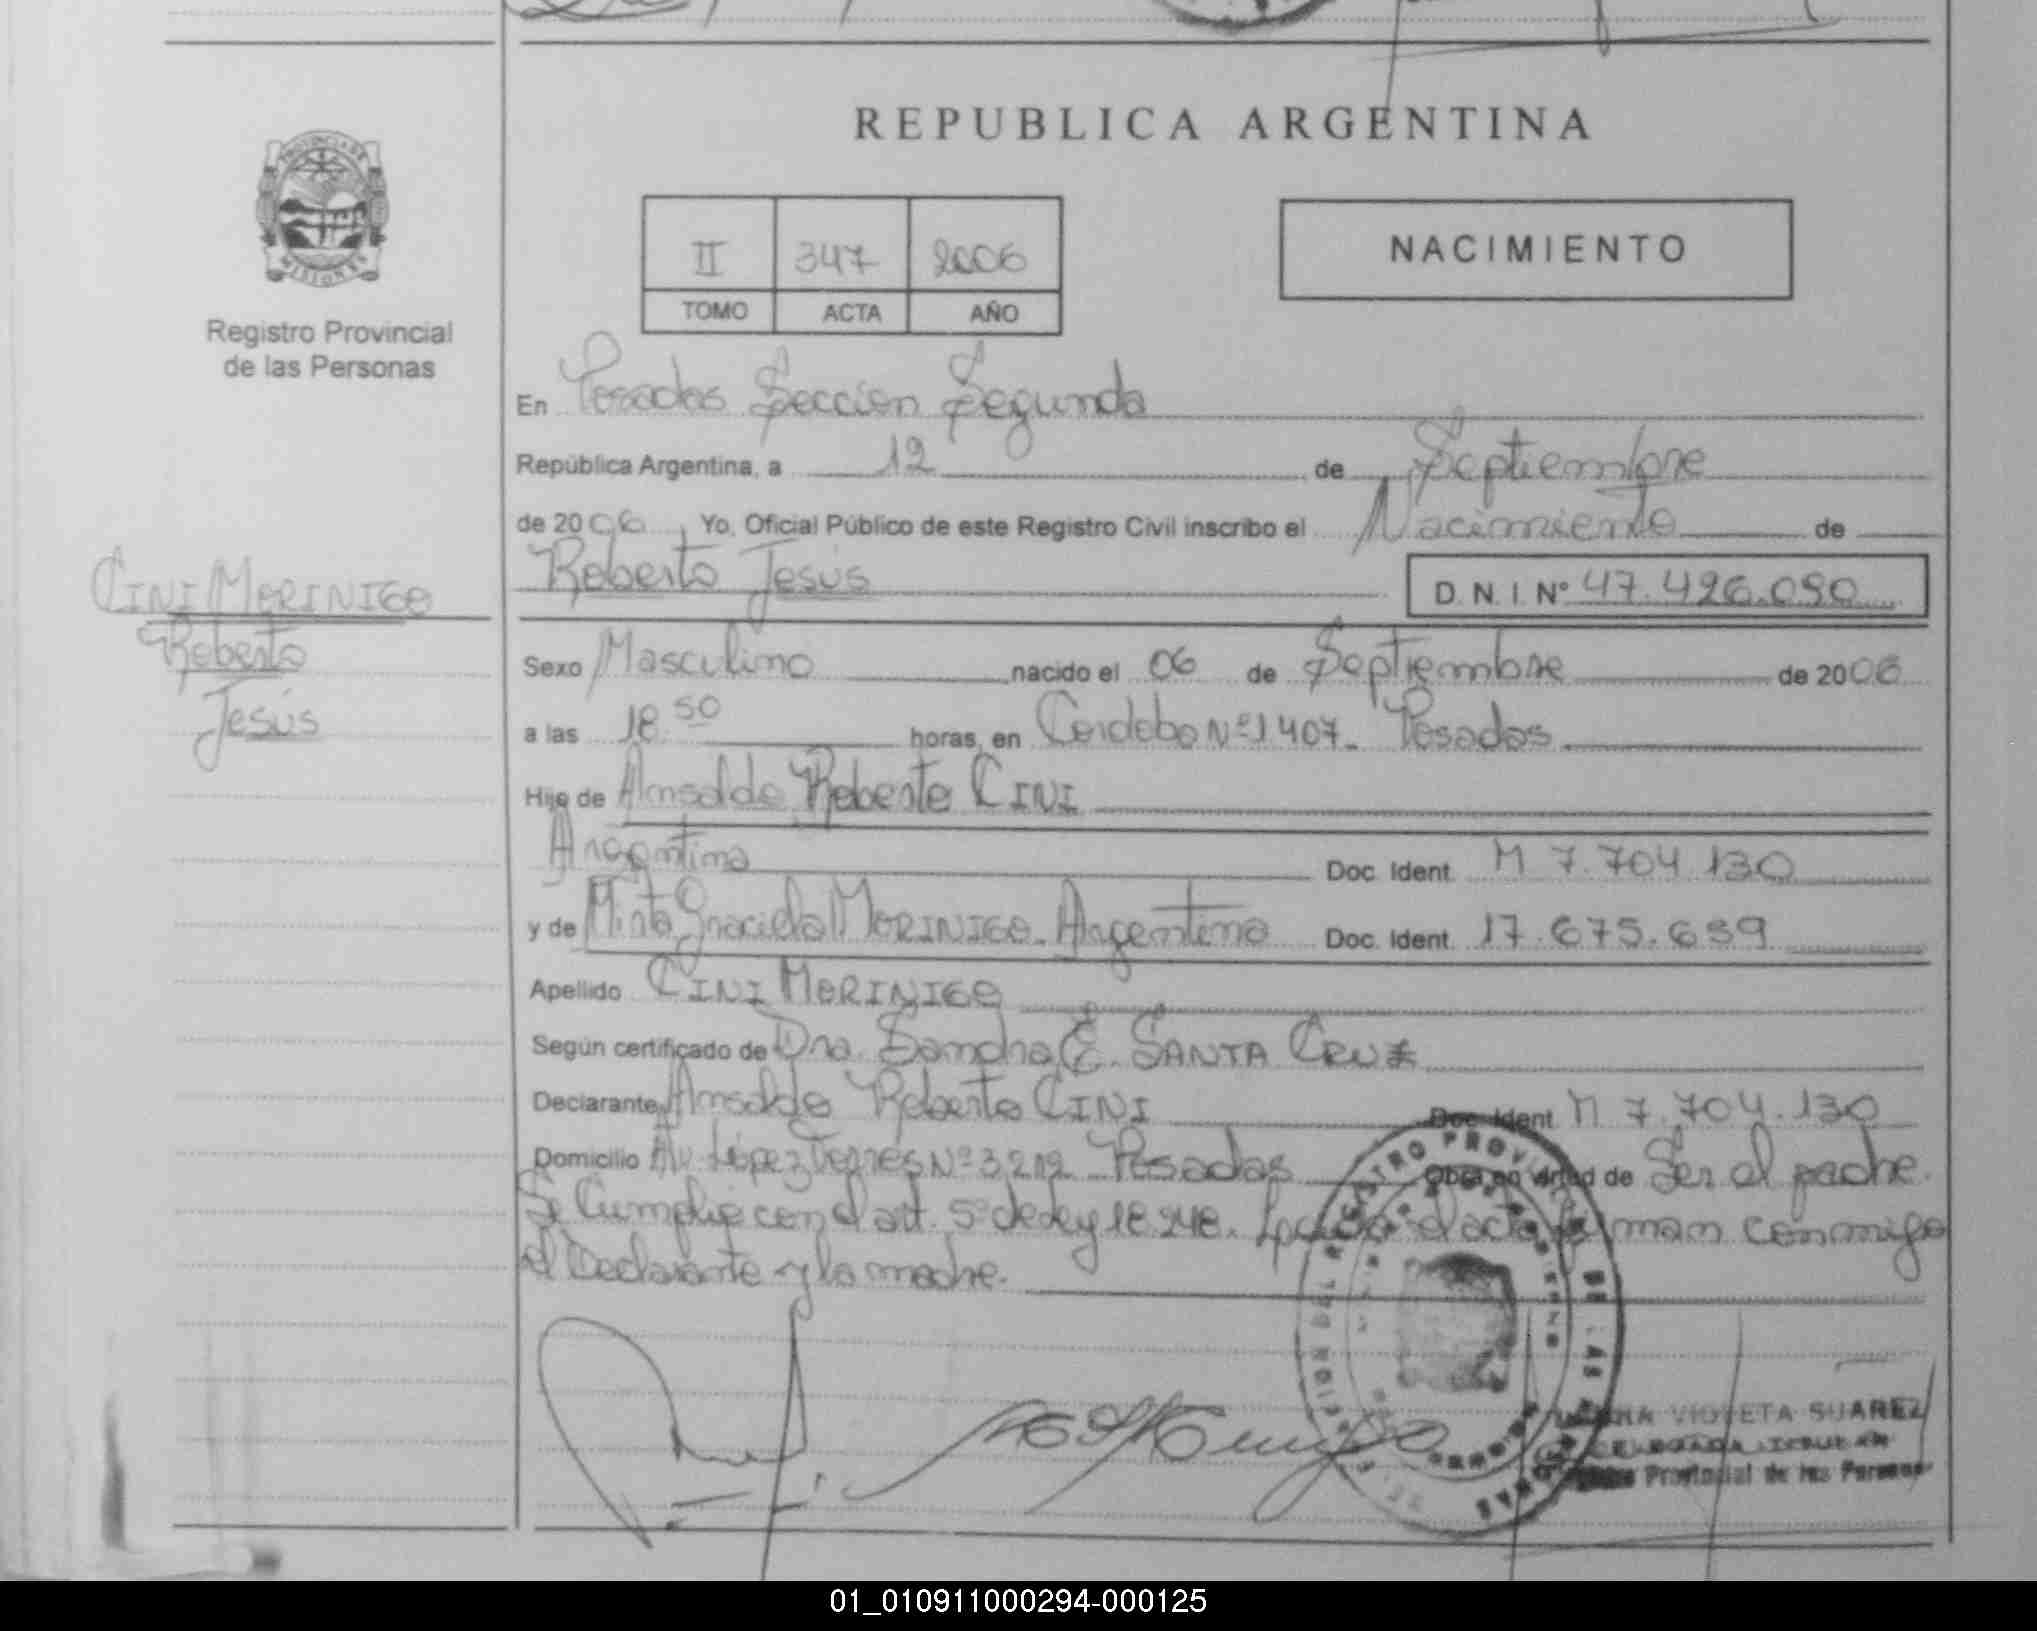 REPUBLICA ARGENTINA
PROVINCIA DE
MISIONES
Registro Provincial
de las Personas
II 347 2006
TOMO ACTA AÑO
NACIMIENTO
En Posadas Sección Segunda
República Argentina, a 12 de Septiembre
de 2006, Yo, Oficial Público de este Registro Civil inscribo el Nacimiento de
Roberto Jesús
D. N. I. Nº 47.426.090
CINI MORINIGO
Roberto
Jesús
Sexo Masculino nacido el 06 de Septiembre de 2006
a las 18 50 horas, en Cordoba Nº 1407- Posadas
Hijo de Arnaldo Roberto CINI
Argentina Doc. Ident. M 7.704.130
y de Mirta Graciela MORINIGO- Argentina Doc. Ident. 17.675.639
Apellido CINI MORINIGO
Según certificado de Dra. Sandra E. SANTA CRUZ
Declarante Arnaldo Roberto CINI Doc. Ident. M 7.704.130
Domicilio Av. López Torres Nº 3212 Posadas Obra en virtud de Ser el padre.
Se Cumplió con el art. 5º de Ley 18.248. Leida el acta firman conmigo
el Declarante y la madre.
REGISTRO PROVINCIAL DE LAS PERSONAS
VIOLETA SUAREZ
DELEGADA TITULAR
Provincial de las Personas
01_010911000294-000125